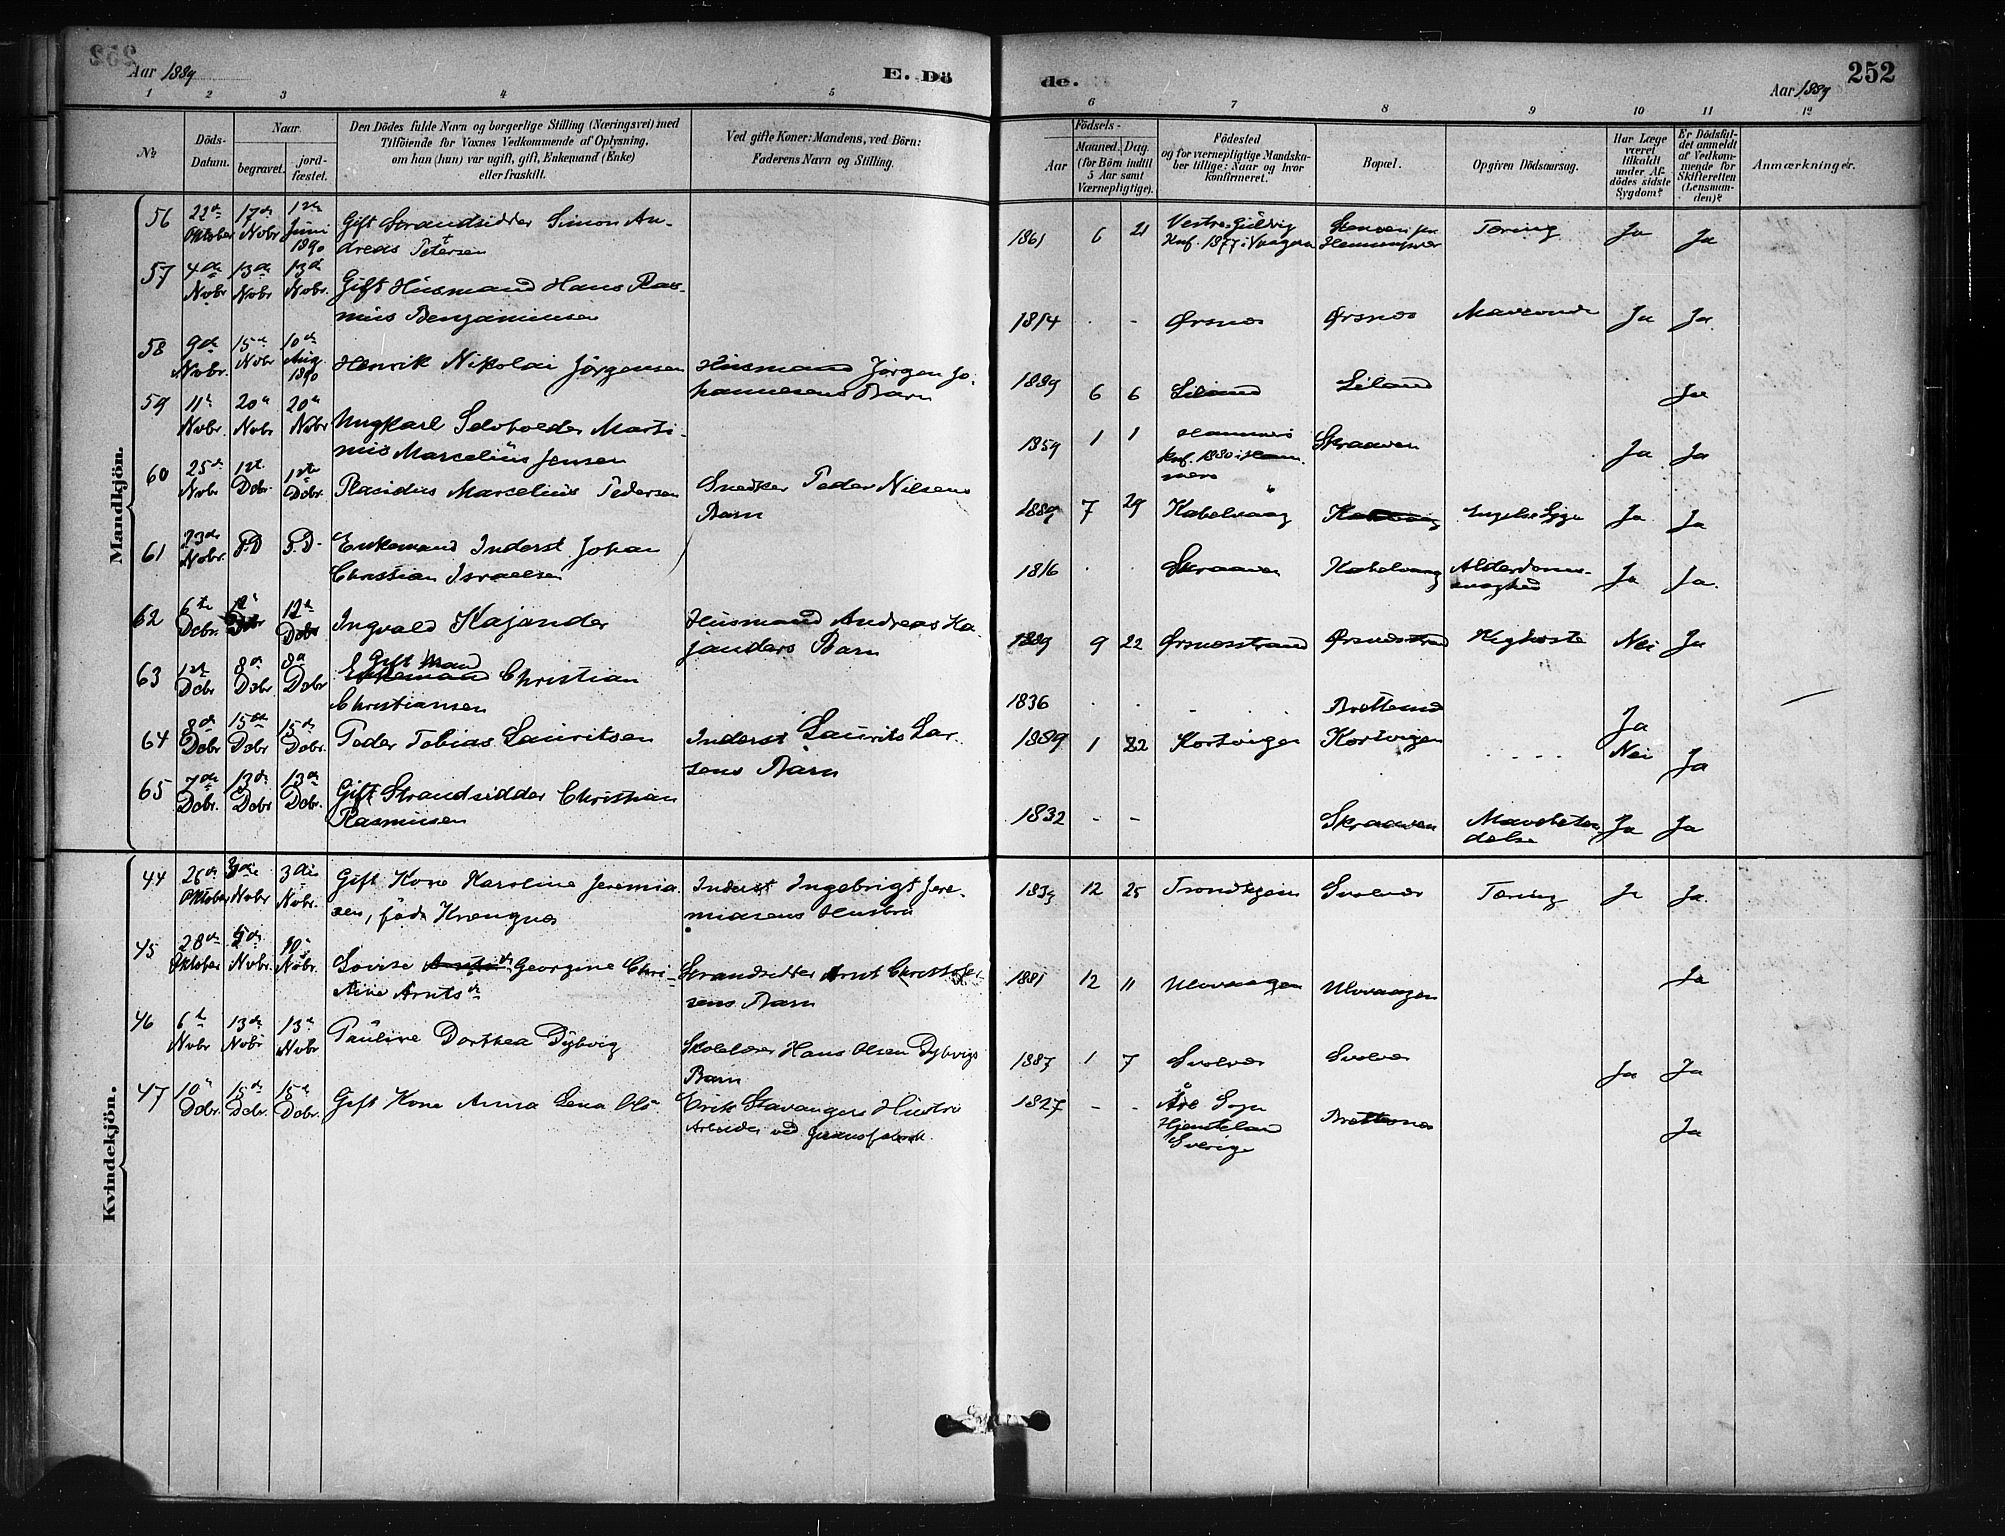 Aar 1889
E. Dö
de.
Aar 1889
252
1 2 3 4 5 6 7 8 9 10 11 12
№
Döds-
Datum.
Naar
begravet.
jord-
fæstet.
Den Dödes fulde Navn og borgerlige Stilling (Næringsvei) med
Tilföiende for Voxnes Vedkommende af Oplysning,
om han (hun) var ugift, gift, Enkemand (Enke)
eller fraskilt.
Ved gifte Koner: Mandens, ved Börn:
Faderens Navn og Stilling.
Födsels-
Aar
Maaned. Dag.
(for Börn indtil
5 Aar samt
Værnepligtige).
Födested
og for værnepligtige Mandska-
ber tillige: Naar og hvor
konfirmeret.
Bopæl.
Opgiven Dödsaarsag.
Har Læge
været
tilkaldt
under Af-
dödes sidste
Sygdom?
Er Dödsfal-
det anmeldt
af Vedkom-
mende for
Skifteretten
(Lensman-
den)?
Anmærkninger.
Mandkjön.
56 22de Oktober 17de Nobr 1ste Juni 1890 Gift Strandsidder Simon An-
dreas Petersen
1861 6 21 Vestre Gulvig Knf. 1877 i Vaagan Tæring Ja Ja
57 4de Nobr 13de Nobr 13de Nobr. Gift Husmand Hans Ras-
mus Benjaminsen
1814 . - Ørsnæs Ørsnæs Maveonde Ja Ja.
58 9de Nobr. 15de Nobr 10de Aug. 1890 Henrik Nikolai Jörgensen Husmand Jörgen Jo-
hannesens Barn
1889 6 6 Liland Liland Ja
59 11te Nobr. 20de Nobr 20de Nobr Ungkarl Selvholder Marti-
nus Marcelius Jensen
1859 1 1 Hammerö Knf. 1880 i Ham-
merö Skraaven Ja Ja
60 25de Nobr 1ste Dcbr. 1ste Dcbr. Plasidus Marcelius Pedersen Snedker Peder Nilsens
Barn
1889 7 29 Kabelvaag Kabelvaag Engelsk Syge Ja Ja
61 23de Nobr. S.D S.D. Enkemand Inderst Johan
Christian Israelsen
1816 . . Skraaven Kabelvaag Alderdoms-
svaghed Ja Ja.
62 6te Dcbr. 12te Dcbr 12te Dcbr Ingvald Kajander Husmand Andreas Ka-
janders Barn
1889 9 22 Ørsnæsstrand Ørsnæsstrand Kighoste Nei Ja
63 1ste Dcbr 8de Dcbr 8de Dcbr Gift Mand Enkemand Christian
Christiansen
1836 . . . . Brettesnæs Ja
64 8de Dcbr 15de Dcbr 15de Dcbr. Peder Tobias Lauritsen Inderst Laurits Lar-
sens Barn
1889 1 22 Kortvigen Kortvigen .... Nei Ja
65 7de Dcbr. 13de Dcbr 13de Dcbr. Gift Strandsidder Christian
Rasmusen
1832 - - Skraaven Mavebeten-
delse Ja Ja
Kvindekjön.
44 26de Oktober 3die Nobr 3die Nobr. Gift Kone Karoline Jeremia-
sen, född Krengnæs Inderst Ingebrigt Jere-
miasens Hustru
1839 12 25 Trondhjem Svolvær Tæring Ja Ja.
45 28de Oktober Nobr. 10de Nobr. Lovise Georgine Chri-
stine Arntsdr Strandsidder Arnt Christofer-
sens Barn
1881 12 11 Ulvvaagen Ulvvaagen Ja
46 6te Nobr 13de Nobr 13de Nobr Pauline Dorthea Dybvig Skolelærer Hans Olsen Dybvigs
Barn
1887 1 7 Svolvær Svolvær Ja Ja
47 10de Dcbr. 15de Dcbr. 15de Dcbr. Gift Kone Anna Lena Ols Erik Stavangers Hustru
Arbeider ved Guanofabrik.
1827 - - Åre Sogn
Hjemtland
Sverige Brettesnæs Ja